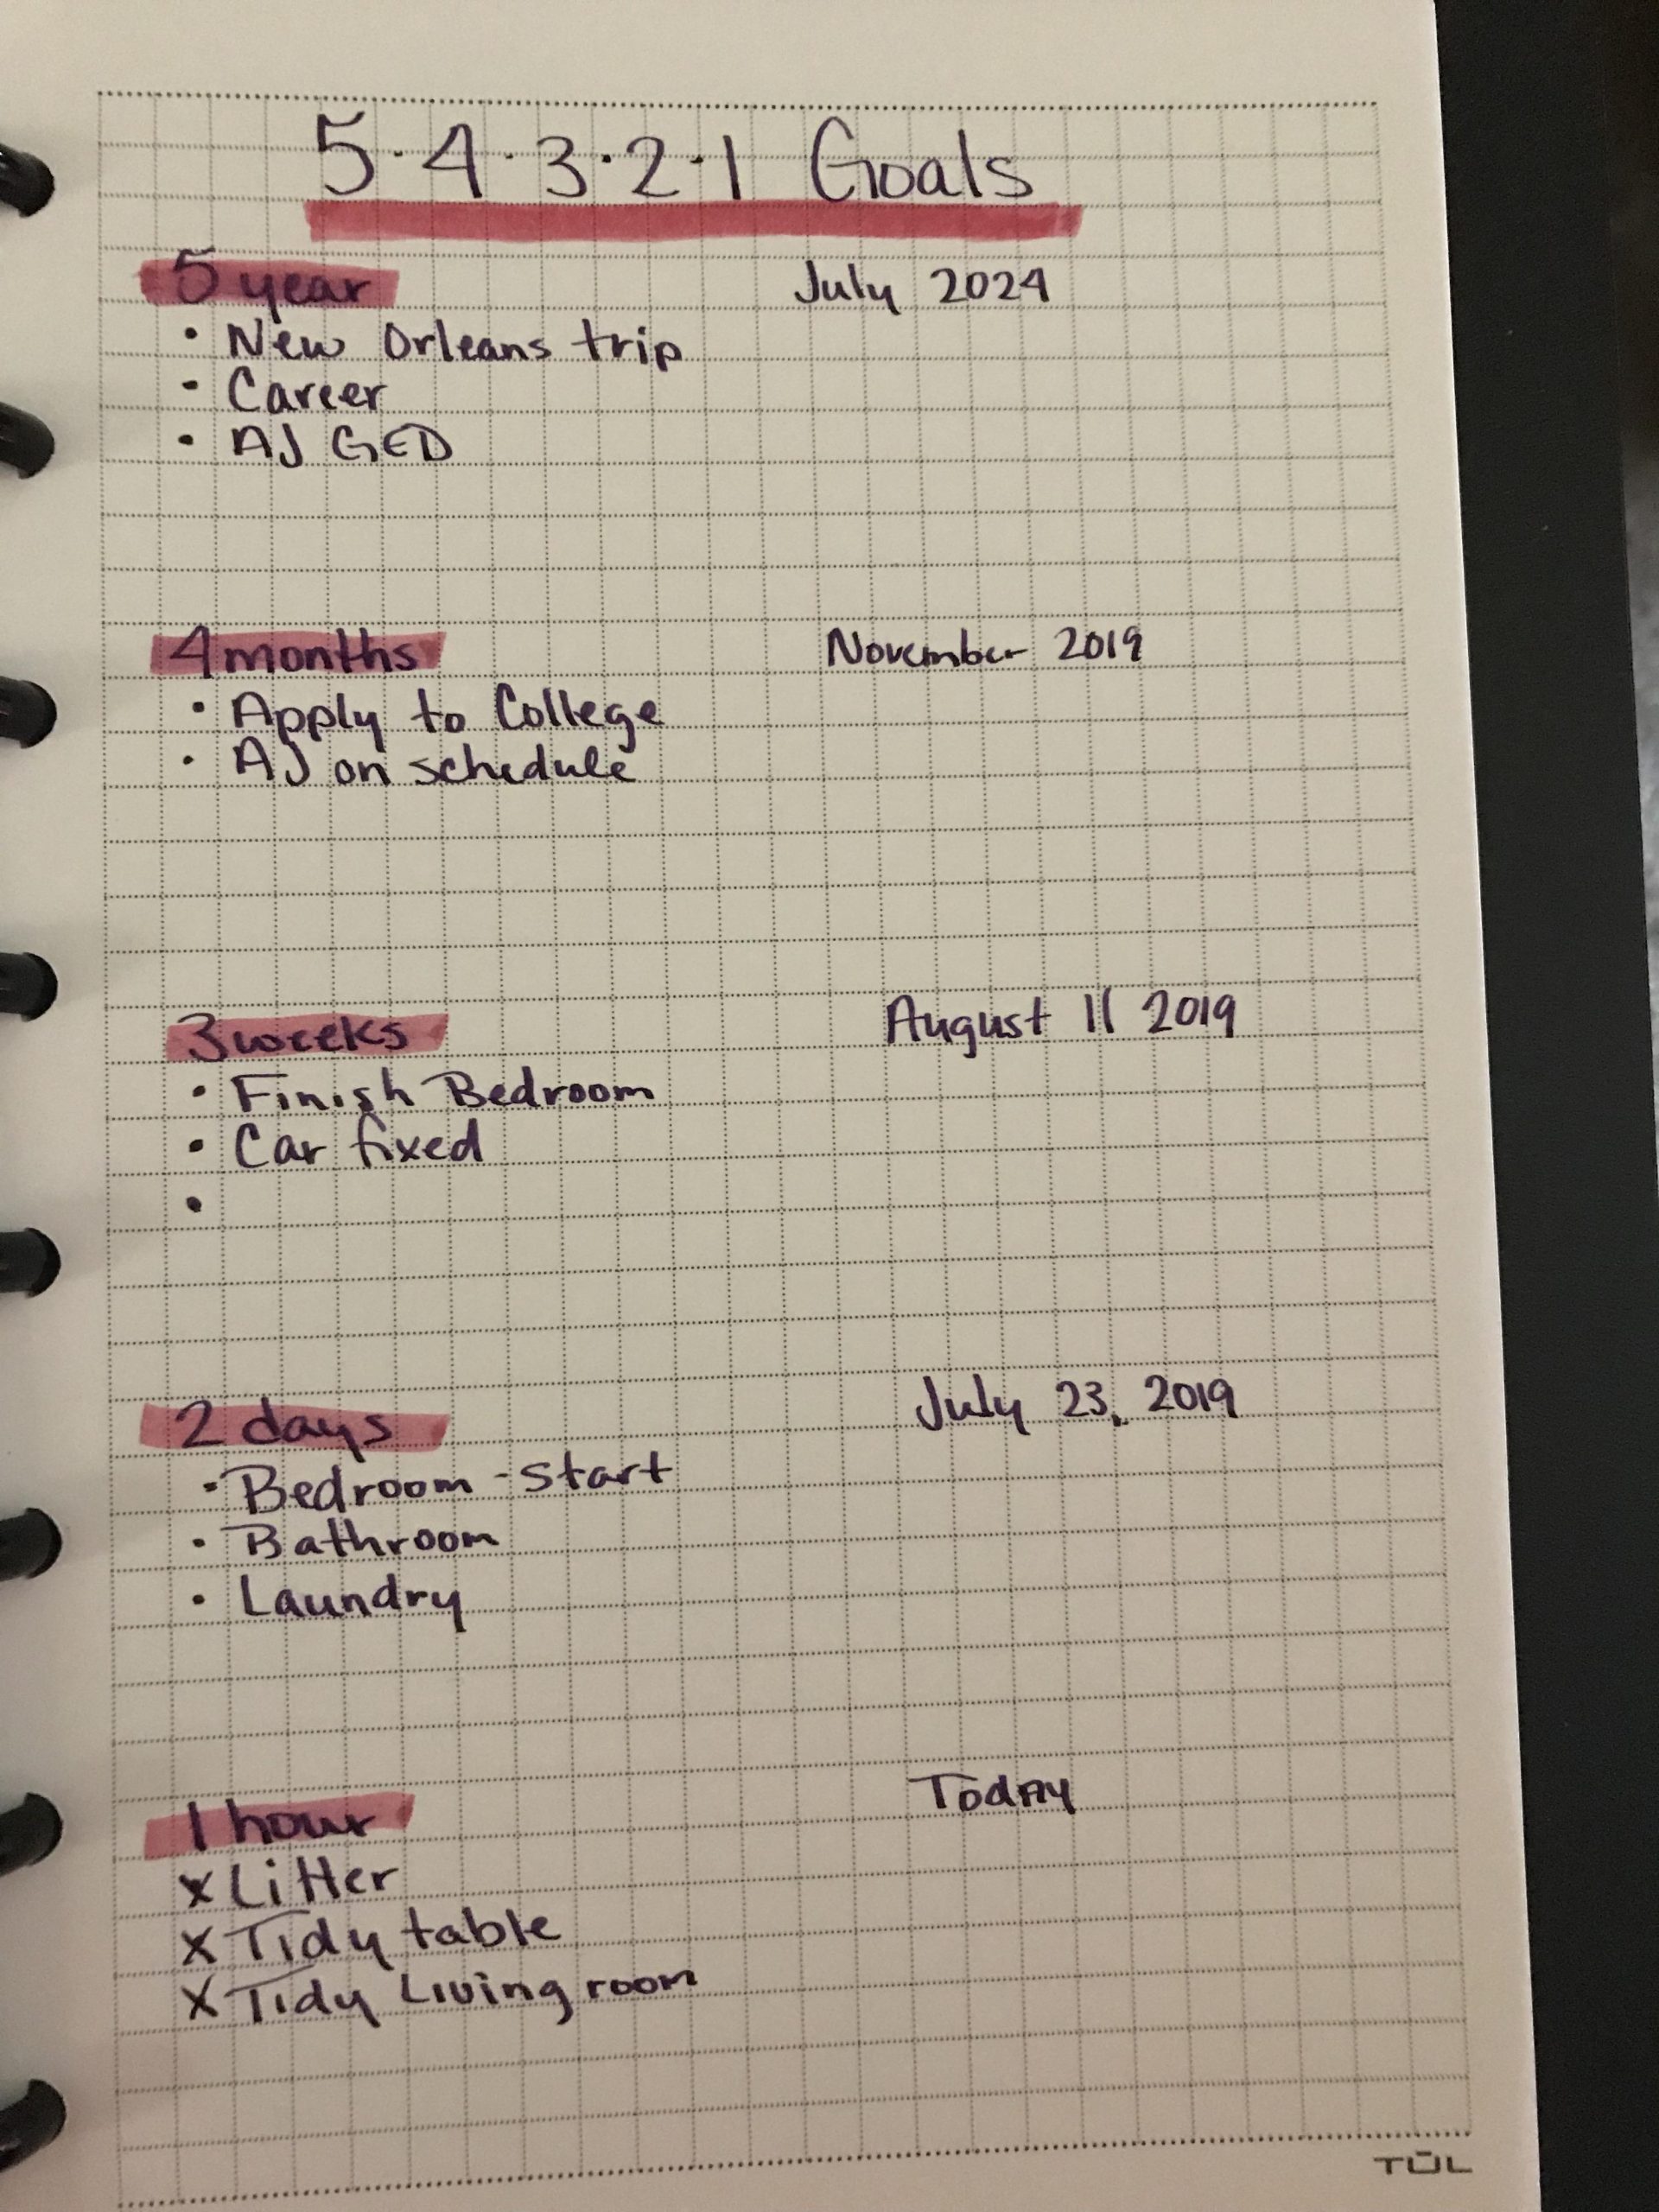 5·4·3·2·1 Goals
5 year July 2024
• New Orleans trip
• Career
• AJ GED
4 months November 2019
• Apply to College
• AJ on schedule
3 weeks August 11 2019
• Finish Bedroom
• Car fixed
•
2 days July 23, 2019
• Bedroom - start
• Bathroom
• Laundry
1 hour Today
x Litter
x Tidy table
x Tidy Living room
TŪL